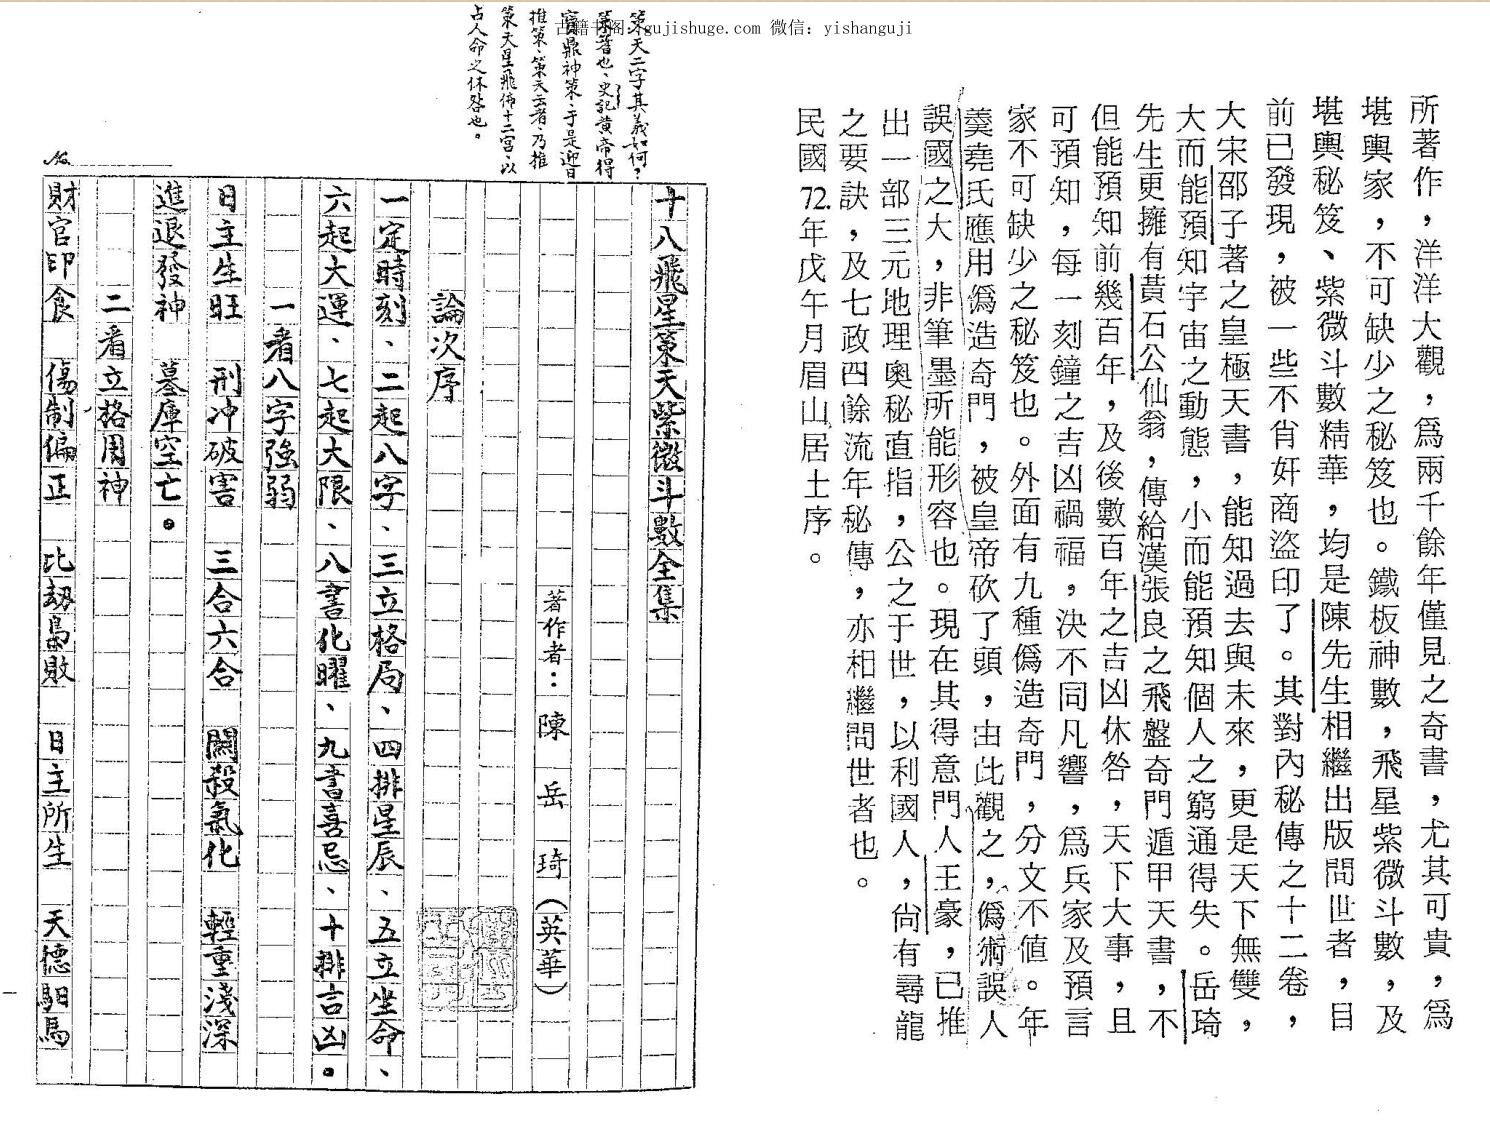 古籍书阁：gujishuge.com 微信：yishanguji
所著作，洋洋大觀，爲兩千餘年僅見之奇書，尤其可貴，爲
堪輿家，不可缺少之秘笈也。鐵板神數，飛星紫微斗數，及
堪輿秘笈、紫微斗數精華，均是陳先生相繼出版問世者，目
前已發現，被一些不肖奸商盜印了。其對內秘傳之十二卷，
大宋邵子著之皇極天書，能知過去與未來，更是天下無雙，
大而能預知宇宙之動態，小而能預知個人之窮通得失。岳琦
先生更擁有黃石公仙翁，傳給漢張良之飛盤奇門遁甲天書，不
但能預知前幾百年，及後數百年之吉凶休咎，天下大事，且
可預知，每一刻鐘之吉凶禍福，決不同凡響，爲兵家及預言
家不可缺少之秘笈也。外面有九種僞造奇門，分文不值。年
羹堯氏應用僞造奇門，被皇帝砍了頭，由此觀之，僞術誤人
誤國之大，非筆墨所能形容也。現在其得意門人王豪，已推
出一部三元地理奧秘直指，公之于世，以利國人，尙有尋龍
之要訣，及七政四餘流年秘傳，亦相繼問世者也。
民國72.年戊午月眉山居士序。
策天二字其義如何，
策蓍也、史記黃帝得
寶鼎神策，于是迎日
推策、策天云者，乃推
策天星飛佈十二宮，以
占人命之休咎也。
No.
十八飛星策天紫微斗數全集
著作者：陳岳琦（英華）
論次序
一定時刻、二起八字、三立格局、四排星辰、五立坐命、
六起大運、七起大限、八書化曜、九書喜忌、十排吉凶。
一看八字強弱
日主生旺 刑冲破害 三合六合 關殺氣化 輕重淺深
進退發神 墓庫空亡。
二看立格用神
財官印食 傷制偏正 比劫梟敗 日主所生 天德馹馬
一